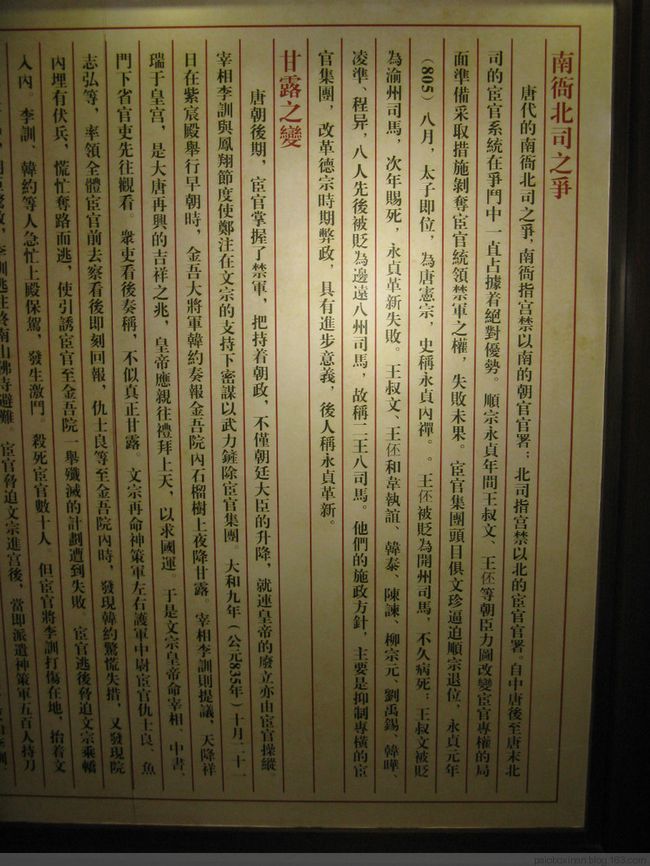 南衙北司之爭
唐代的南衙北司之爭，南衙指宮禁以南的朝官官署；北司指宮禁以北的宦官官署。自中唐後至唐末北
司的宦官系統在爭鬥中一直占據着絕對優勢。順宗永貞年間王叔文、王伾等朝臣力圖改變宦官專權的局
面準備采取措施剝奪宦官統領禁軍之權，失敗未果。宦官集團頭目俱文珍逼迫順宗退位，永貞元年
（805）八月，太子即位，為唐憲宗，史稱永貞內禪。。王伾被貶為開州司馬，不久病死；王叔文被貶
為渝州司馬，次年賜死，永貞革新失敗。王叔文、王伾和韋執誼、韓泰、陳諫、柳宗元、劉禹錫、韓曄、
凌準、程异，八人先後被貶為邊遠八州司馬，故稱二王八司馬。他們的施政方針，主要是抑制專橫的宦
官集團，改革德宗時期弊政，具有進步意義，後人稱永貞革新。
甘露之變
唐朝後期，宦官掌握了禁軍，把持着朝政，不僅朝廷大臣的升降，就連皇帝的廢立亦由宦官操縱
宰相李訓與鳳翔節度使鄭注在文宗的支持下密謀以武力鏟除宦官集團。大和九年（公元835年）十月二十一
日在紫宸殿舉行早朝時，金吾大將軍韓約奏報金吾院內石榴樹上夜降甘露 宰相李訓則提議，天降祥
瑞于皇宮，是大唐再興的吉祥之兆，皇帝應親往禮拜上天，以求國運。于是文宗皇帝命宰相、中書、
門下省官吏先往觀看。衆吏看後奏稱，不似真正甘露 文宗再命神策軍左右護軍中尉宦官仇士良、魚
志弘等，率領全體宦官前去察看後即刻回報，仇士良等至金吾院內時，發現韓約驚慌失措，又發現院
內埋有伏兵，慌忙奪路而逃，使引誘宦官至金吾院一舉殲滅的計劃遭到失敗 宦官逃後脅迫文宗乘轎
入內。李訓、韓約等人急忙上殿保駕，發生激鬥。殺死宦官數十人，但宦官將李訓打傷在地，抬着文
李訓逃往終南山佛寺避難。宦官脅迫文宗進宮後，當即派遣神策軍五百人持刀
psiboxinan.blog.163.com